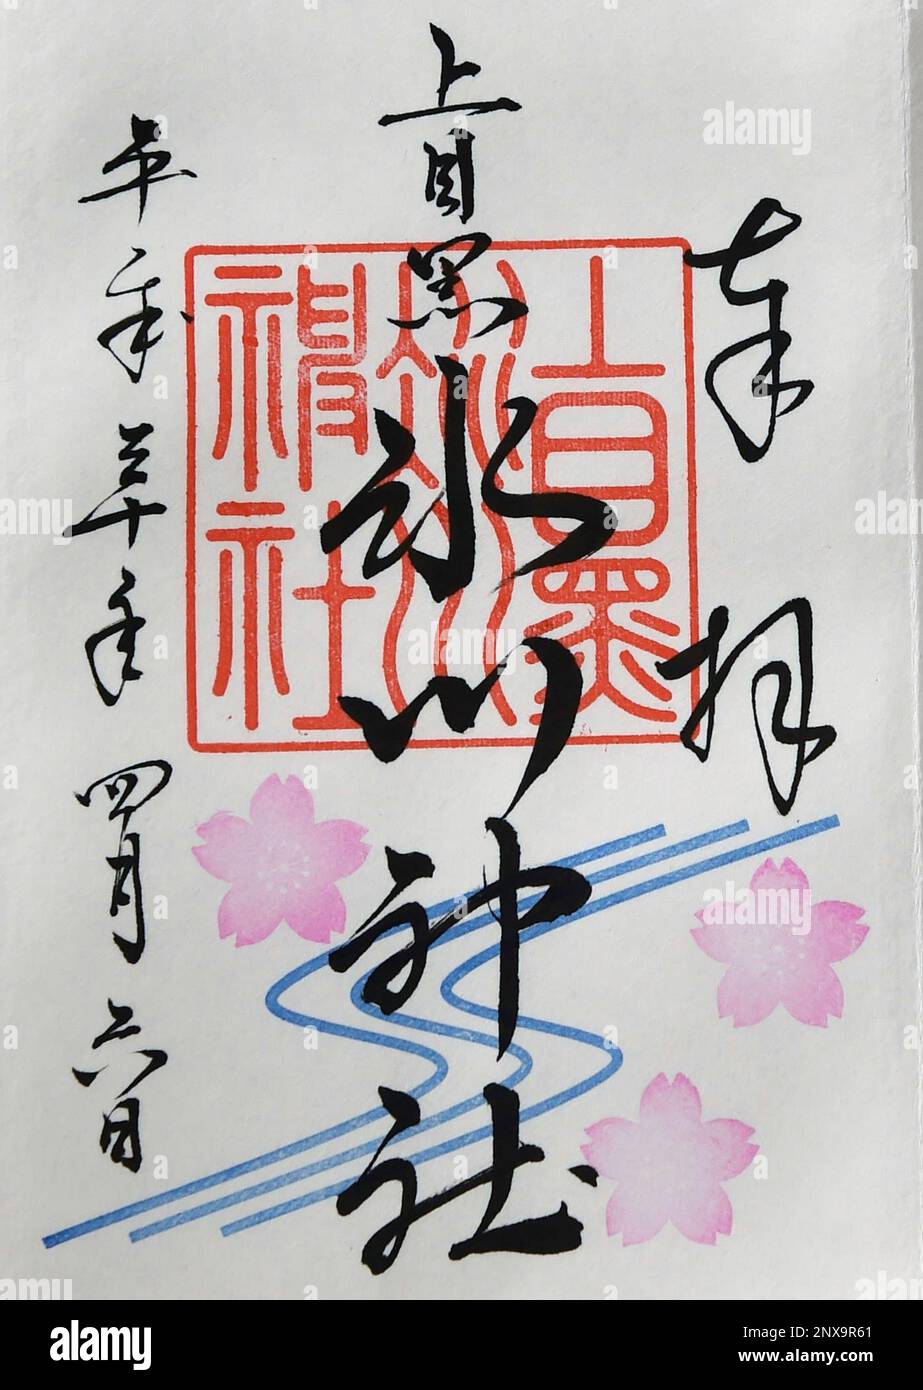 奉拝
上目黒氷川神社
上目黒
氷川
神社
平成三十年四月六日
alamy
Image ID: 2NX9R61
www.alamy.com